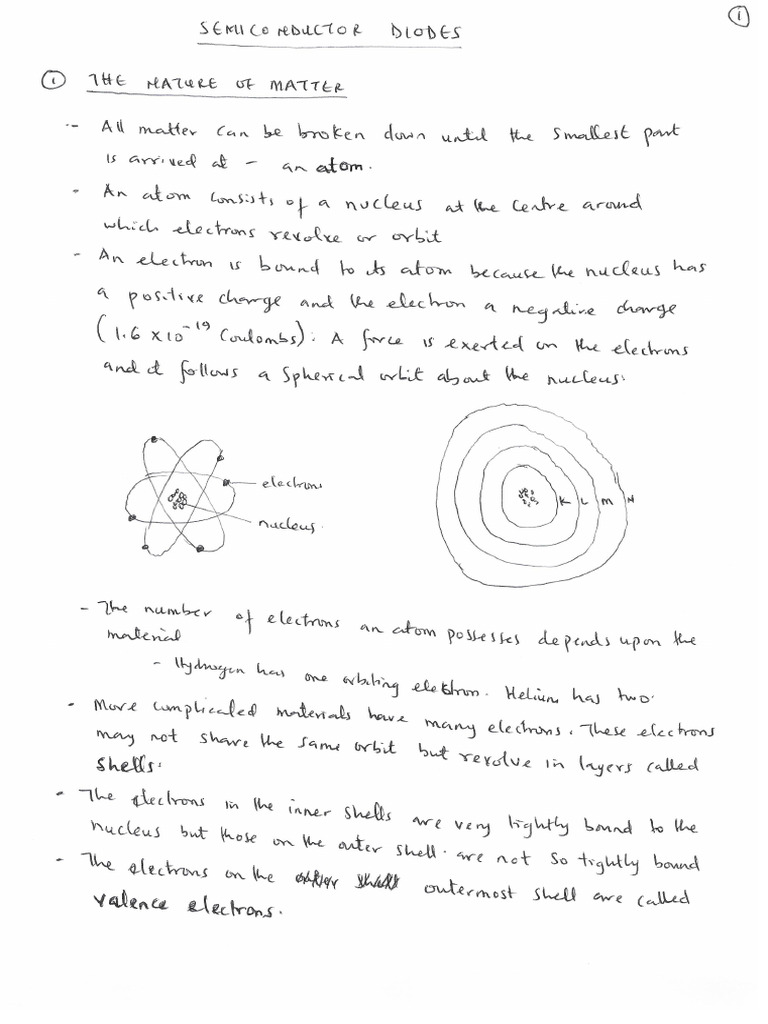 ①
SEMICONDUCTOR DIODES
① THE NATURE OF MATTER
- All matter can be broken down until the smallest part
is arrived at - an atom.
- An atom consists of a nucleus at the centre around
which electrons revolve or orbit
- An electron is bound to its atom because the nucleus has
a positive charge and the electron a negative charge
(1.6 x 10⁻¹⁹ Coulombs). A force is exerted on the electrons
and it follows a spherical orbit about the nucleus.
electrons
nucleus.
K L M N
- The number of electrons an atom possesses depends upon the
material
- Hydrogen has one orbiting electron. Helium has two.
- More complicated materials have many electrons. These electrons
may not share the same orbit but revolve in layers called
shells.
- The electrons in the inner shells are very tightly bound to the
nucleus but those on the outer shell. are not so tightly bound
- The electrons on the outermost shell are called
valence electrons.